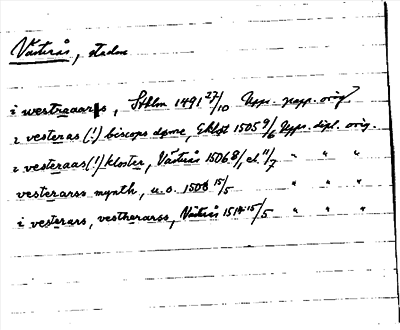 Västerås, staden
i westraars, Sthlm 1491 27/10 Upps. papp. orig.
i vesteras (!) biscops døme, Eklpt 1505 9/6 Upps. dipl. orig.
i vesteraas (!) kloster, Västerås 1506 8/1, et. 11/7 " " "
vesterarss mynth, u.o. 1508 15/5 " " "
i vesterars, vestherarss, Västerås 1514 15/5 " " "